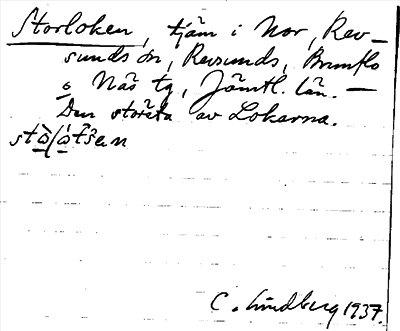 Storloken, tjärn i Nor, Rev-
sunds sn, Revsunds, Brunflo
o Näs tg, Jämtl. län. —
Den största av Lokarna.
C. Lindberg 1937.